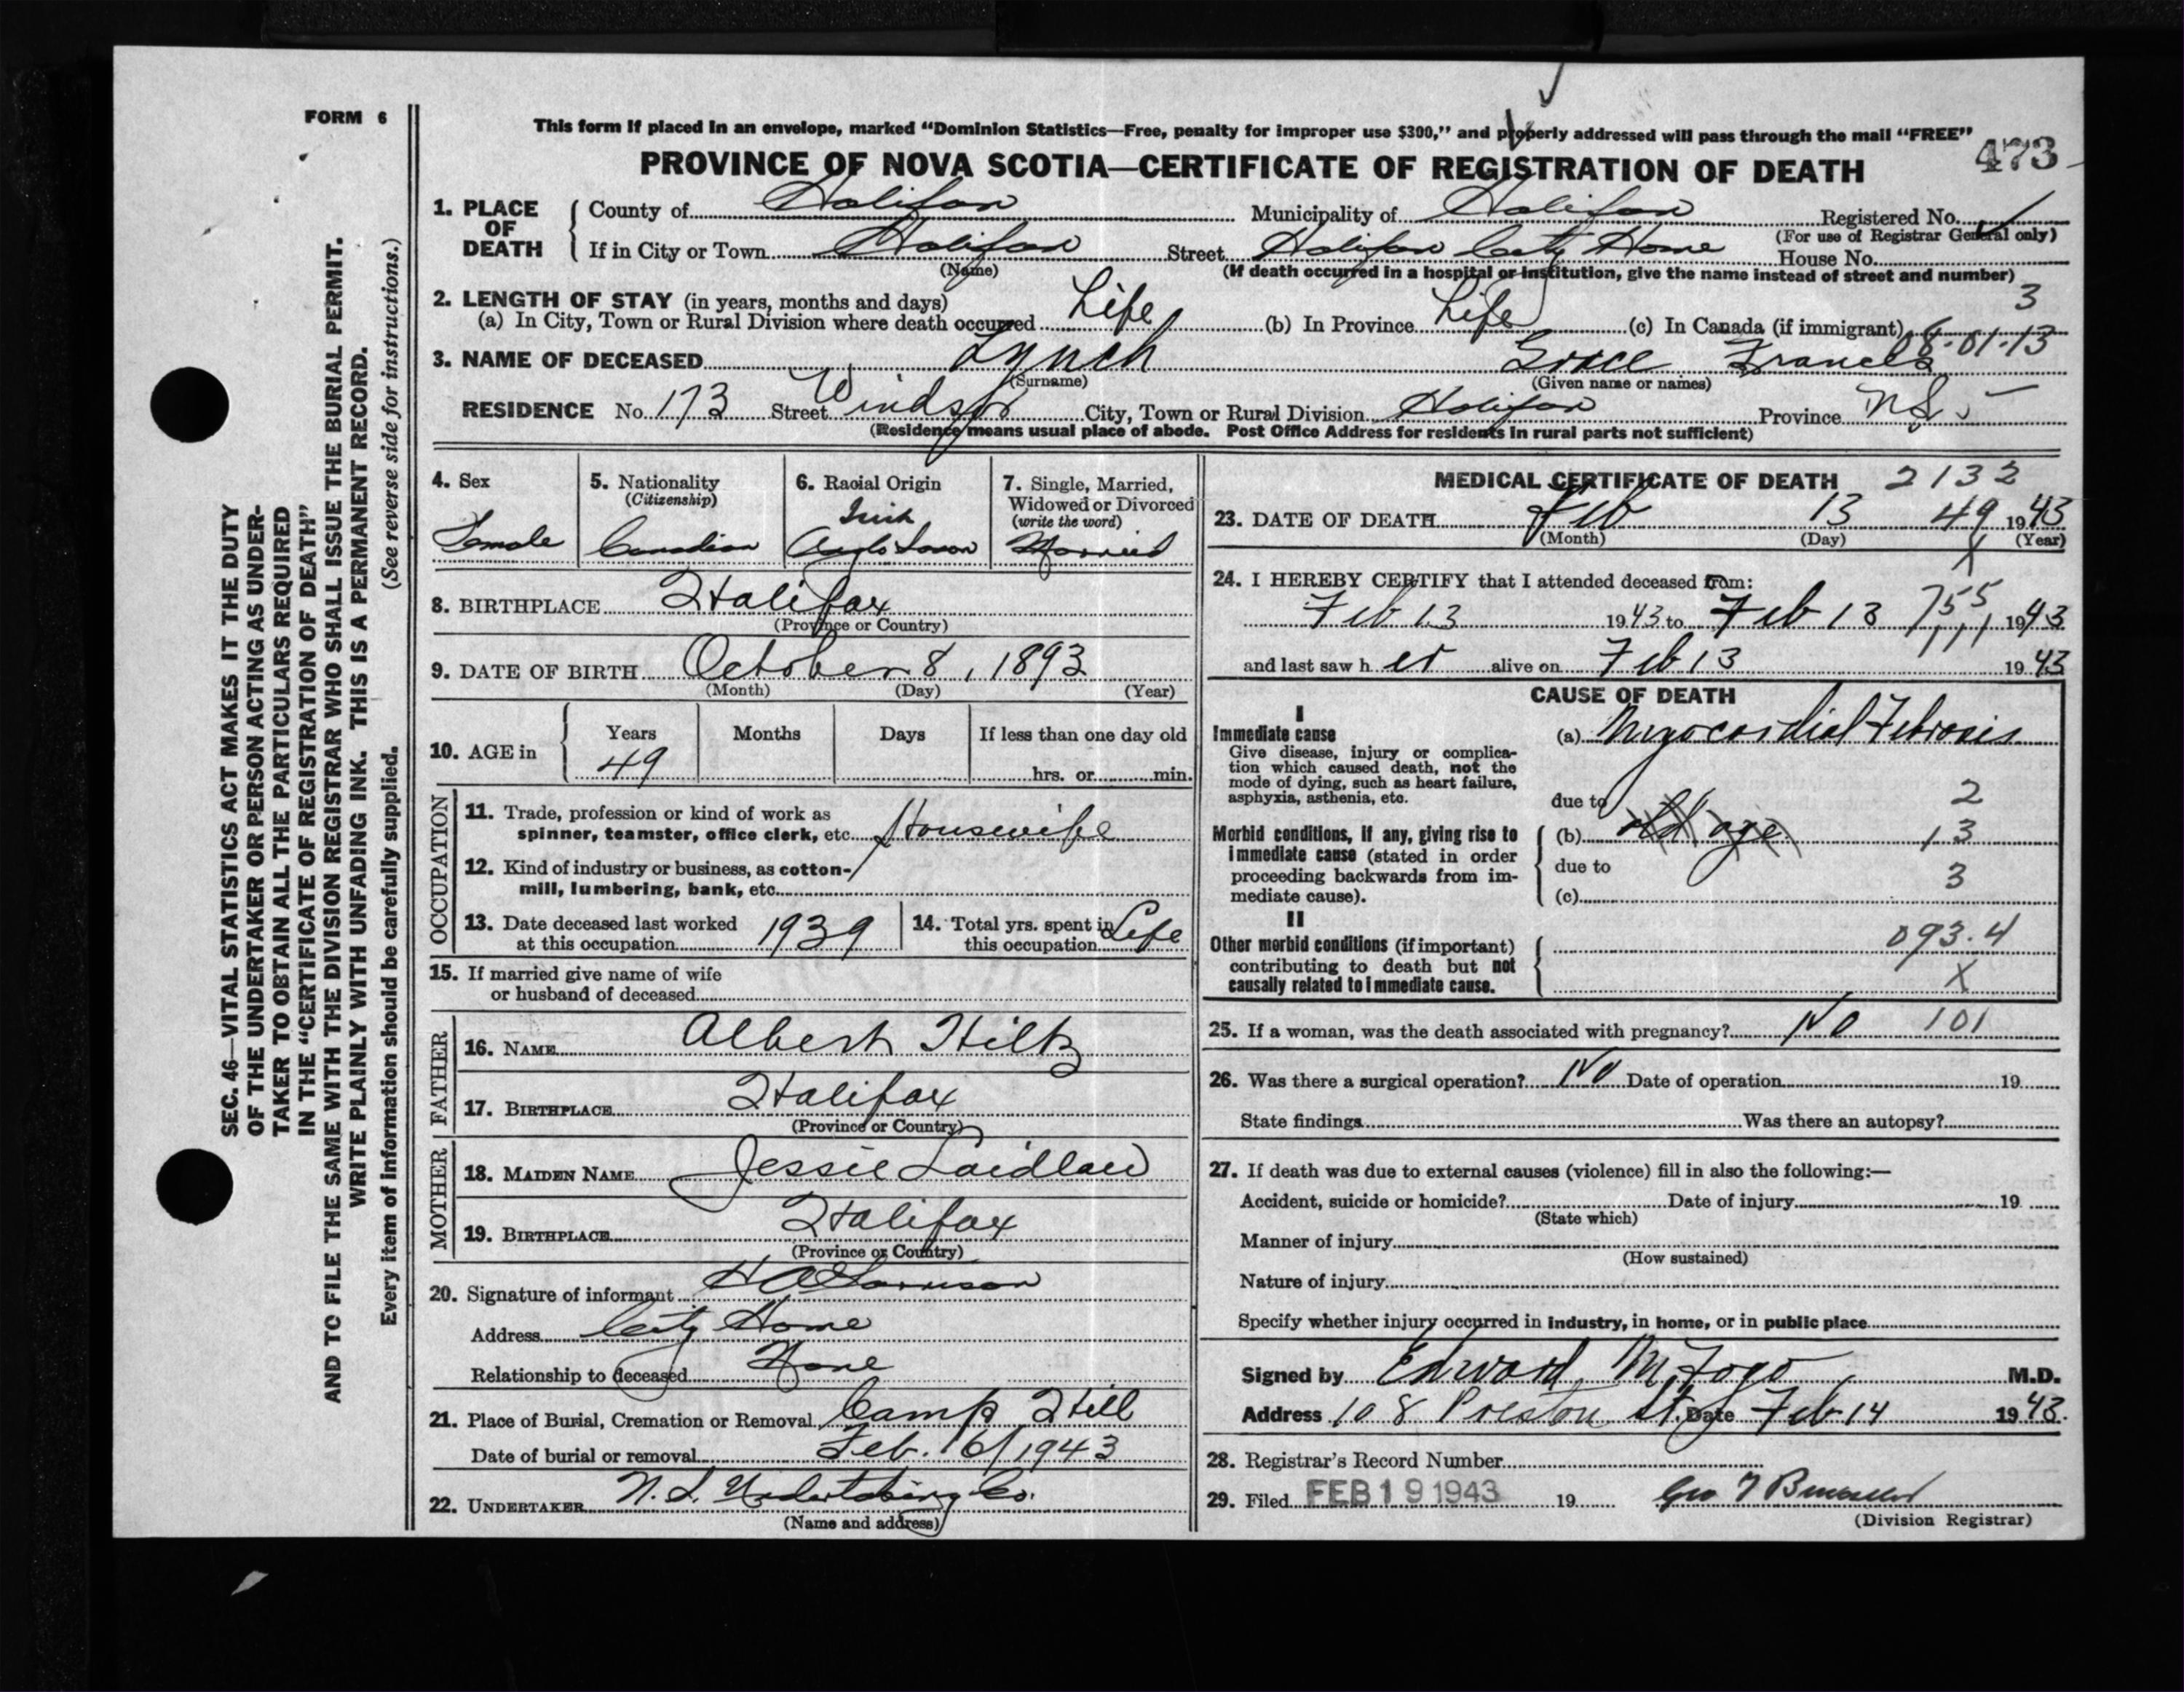 FORM 6
This form if placed in an envelope, marked “Dominion Statistics—Free, penalty for improper use $300,” and properly addressed will pass through the mail “FREE”
PROVINCE OF NOVA SCOTIA—CERTIFICATE OF REGISTRATION OF DEATH 473
1. PLACE OF DEATH County of Halifax Municipality of Halifax Registered No.
(For use of Registrar General only)
If in City or Town Halifax Street Halifax City Home House No.
(Name) (If death occurred in a hospital or institution, give the name instead of street and number)
2. LENGTH OF STAY (in years, months and days) 3
(a) In City, Town or Rural Division where death occurred Life (b) In Province Life (c) In Canada (if immigrant)
08-01-13
3. NAME OF DECEASED Lynch Grace Francis
(Surname) (Given name or names)
RESIDENCE No. 173 Street Windsor City, Town or Rural Division Halifax Province N.S.
(Residence means usual place of abode. Post Office Address for residents in rural parts not sufficient)
4. Sex 5. Nationality 6. Racial Origin 7. Single, Married,
(Citizenship) Widowed or Divorced
Irish (write the word)
Female Canadian Anglo Saxon Married
8. BIRTHPLACE Halifax
(Province or Country)
9. DATE OF BIRTH October 8, 1893
(Month) (Day) (Year)
10. AGE in Years Months Days If less than one day old
49 hrs. or min.
OCCUPATION
11. Trade, profession or kind of work as
spinner, teamster, office clerk, etc. Housewife
12. Kind of industry or business, as cotton-
mill, lumbering, bank, etc.
13. Date deceased last worked
at this occupation 1939
14. Total yrs. spent in
this occupation Life
15. If married give name of wife
or husband of deceased
FATHER
16. NAME Albert Hiltz
17. BIRTHPLACE Halifax
(Province or Country)
MOTHER
18. MAIDEN NAME Jessie Laidlaw
19. BIRTHPLACE Halifax
(Province or Country)
20. Signature of informant
Address City Home
Relationship to deceased None
21. Place of Burial, Cremation or Removal Camp Hill
Date of burial or removal Feb. 16/1943
22. UNDERTAKER N.S. Undertaking Co.
(Name and address)
MEDICAL CERTIFICATE OF DEATH 2132
23. DATE OF DEATH Feb 13 49 1943
(Month) (Day) (Year)
X
24. I HEREBY CERTIFY that I attended deceased from:
Feb 13 1943 to Feb 13 755 1943
and last saw her alive on Feb 13 1943
CAUSE OF DEATH
I
Immediate cause (a) Myocardial Fibrosis
Give disease, injury or complica-
tion which caused death, not the
mode of dying, such as heart failure,
asphyxia, asthenia, etc.
due to 2
Morbid conditions, if any, giving rise to
immediate cause (stated in order
proceeding backwards from im-
mediate cause).
(b) old age 13
due to 3
(c)
II
Other morbid conditions (if important)
contributing to death but not
causally related to immediate cause.
093.4
X
25. If a woman, was the death associated with pregnancy? No 101
26. Was there a surgical operation? No Date of operation 19
State findings Was there an autopsy?
27. If death was due to external causes (violence) fill in also the following:—
Accident, suicide or homicide? Date of injury 19
(State which)
Manner of injury
(How sustained)
Nature of injury
Specify whether injury occurred in industry, in home, or in public place
Signed by Edward M. Fogo M.D.
Address 108 Preston St. Date Feb 14 1943.
28. Registrar's Record Number
29. Filed FEB 19 1943 19
(Division Registrar)
SEC. 46—VITAL STATISTICS ACT MAKES IT THE DUTY
OF THE UNDERTAKER OR PERSON ACTING AS UNDER-
TAKER TO OBTAIN ALL THE PARTICULARS REQUIRED
IN THE “CERTIFICATE OF REGISTRATION OF DEATH”
AND TO FILE THE SAME WITH THE DIVISION REGISTRAR WHO SHALL ISSUE THE BURIAL PERMIT.
WRITE PLAINLY WITH UNFADING INK. THIS IS A PERMANENT RECORD.
Every item of information should be carefully supplied. (See reverse side for instructions.)